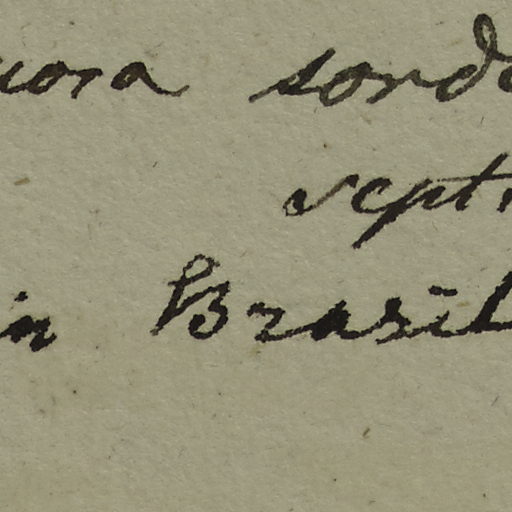 uora sord
sept
in Brasil